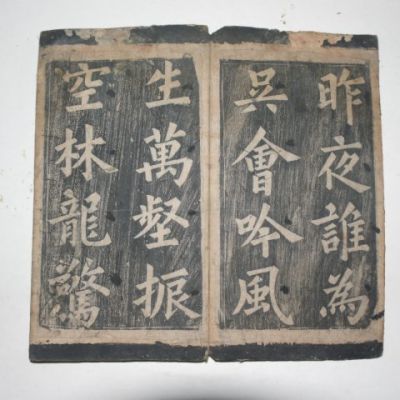 昨夜誰為
吳會吟風
生萬壑振
空林龍驚